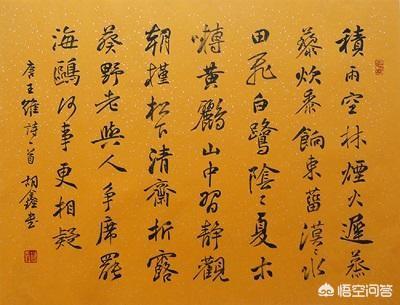 積雨空林煙火遲蒸
藜炊黍餉東菑漠〻水
田飛白鷺陰〻夏木
囀黄鸝山中習靜觀
朝槿松下清齋折露
葵野老與人爭席罷
海鷗何事更相疑
唐王維詩一首 胡鑫書
悟空问答